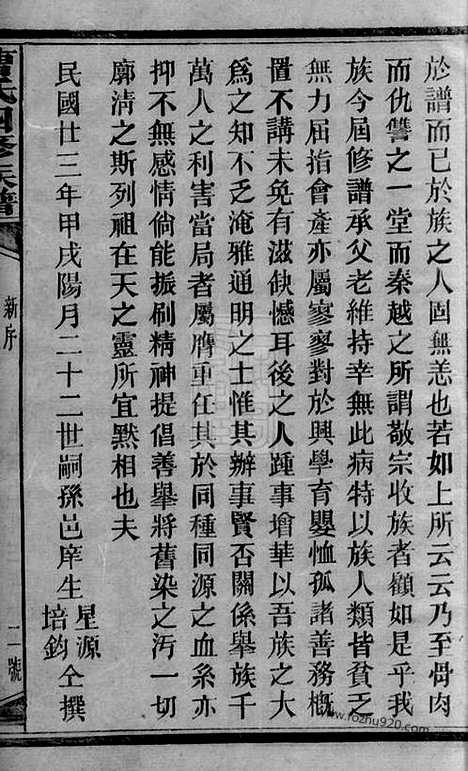 於譜而已於族之人固無恙也若如上所云云乃至骨肉
而仇讐之一堂而秦越之所謂敬宗收族者顧如是乎我
族今屆修譜承父老維持幸無此病特以族人類皆貧乏
無力屆指會產亦屬寥寥對於興學育嬰恤孤諸善務概
置不講未免有滋缺憾耳後之人踵事增華以吾族之大
爲之知不乏淹雅通明之士惟其辦事賢否關係舉族千
萬人之利害當局者屬膺重任其於同種同源之血系亦
抑不無感情倘能振刷精神提倡善舉將舊染之污一切
廓淸之斯列祖在天之靈所宜默相也夫
民國廿三年甲戌陽月二十二世嗣孫邑庠生
星源
培鈞
仝撰
氏四修族譜
新序
二號
www.rozhu920.com